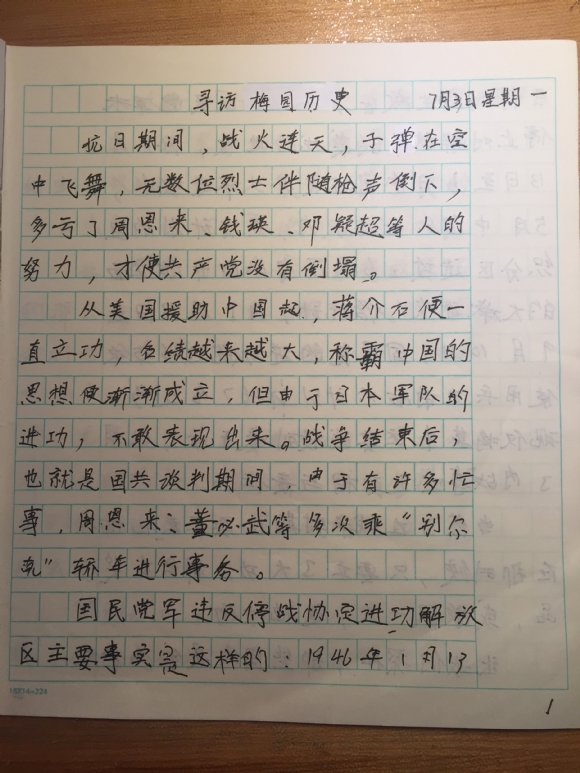 寻访梅园历史 7月3日星期一
抗日期间，战火连天，子弹在空
中飞舞，无数位烈士伴随枪声倒下，
多亏了周恩来、钱瑛、邓颖超等人的
努力，才使共产党没有倒塌。
从美国援助中国起，蒋介石便一
直立功，台绩越来越大，称霸中国的
思想便渐渐成立，但由于日本军队的
进功，不敢表现出来。战争结束后，
也就是国共谈判期间，由于有许多忙
事，周恩来、董必武等多次乘“别尔
克”轿车进行事务。
国民党军违反停战协定进功解放
区主要事实是这样的：1946年1月13
16X14=224
1